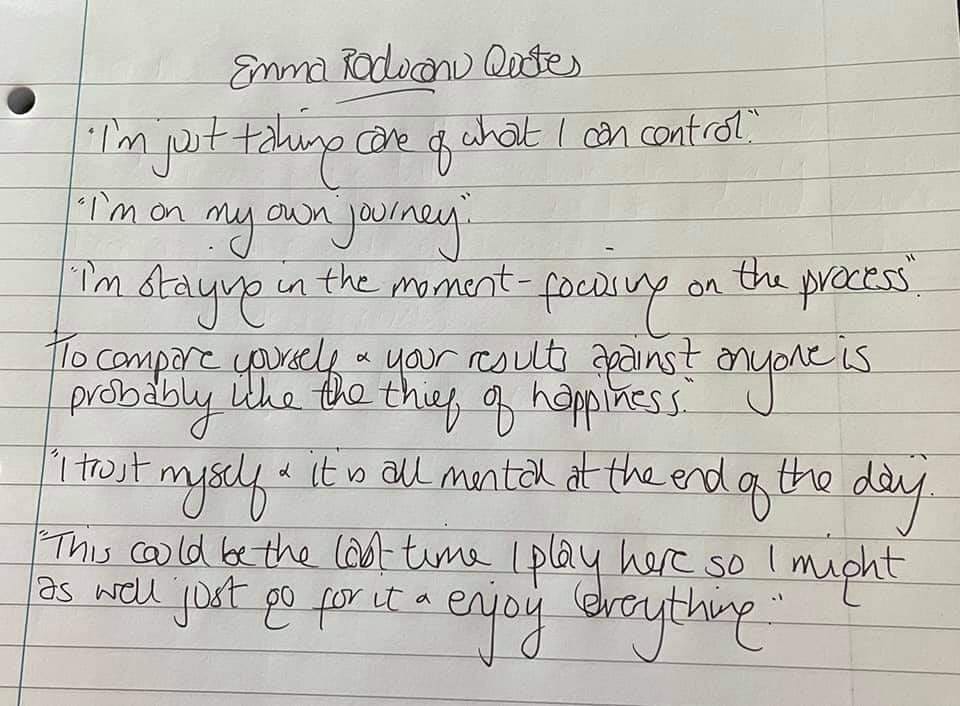 Emma Raducanu Quotes
"I'm just taking care of what I can control."
"I'm on my own journey".
"I'm staying in the moment - focusing on the process".
To compare yourself & your results against anyone is
probably like the thief of happiness."
"I trust myself & it is all mental at the end of the day".
"This could be the last time I play here so I might
as well just go for it & enjoy everything."